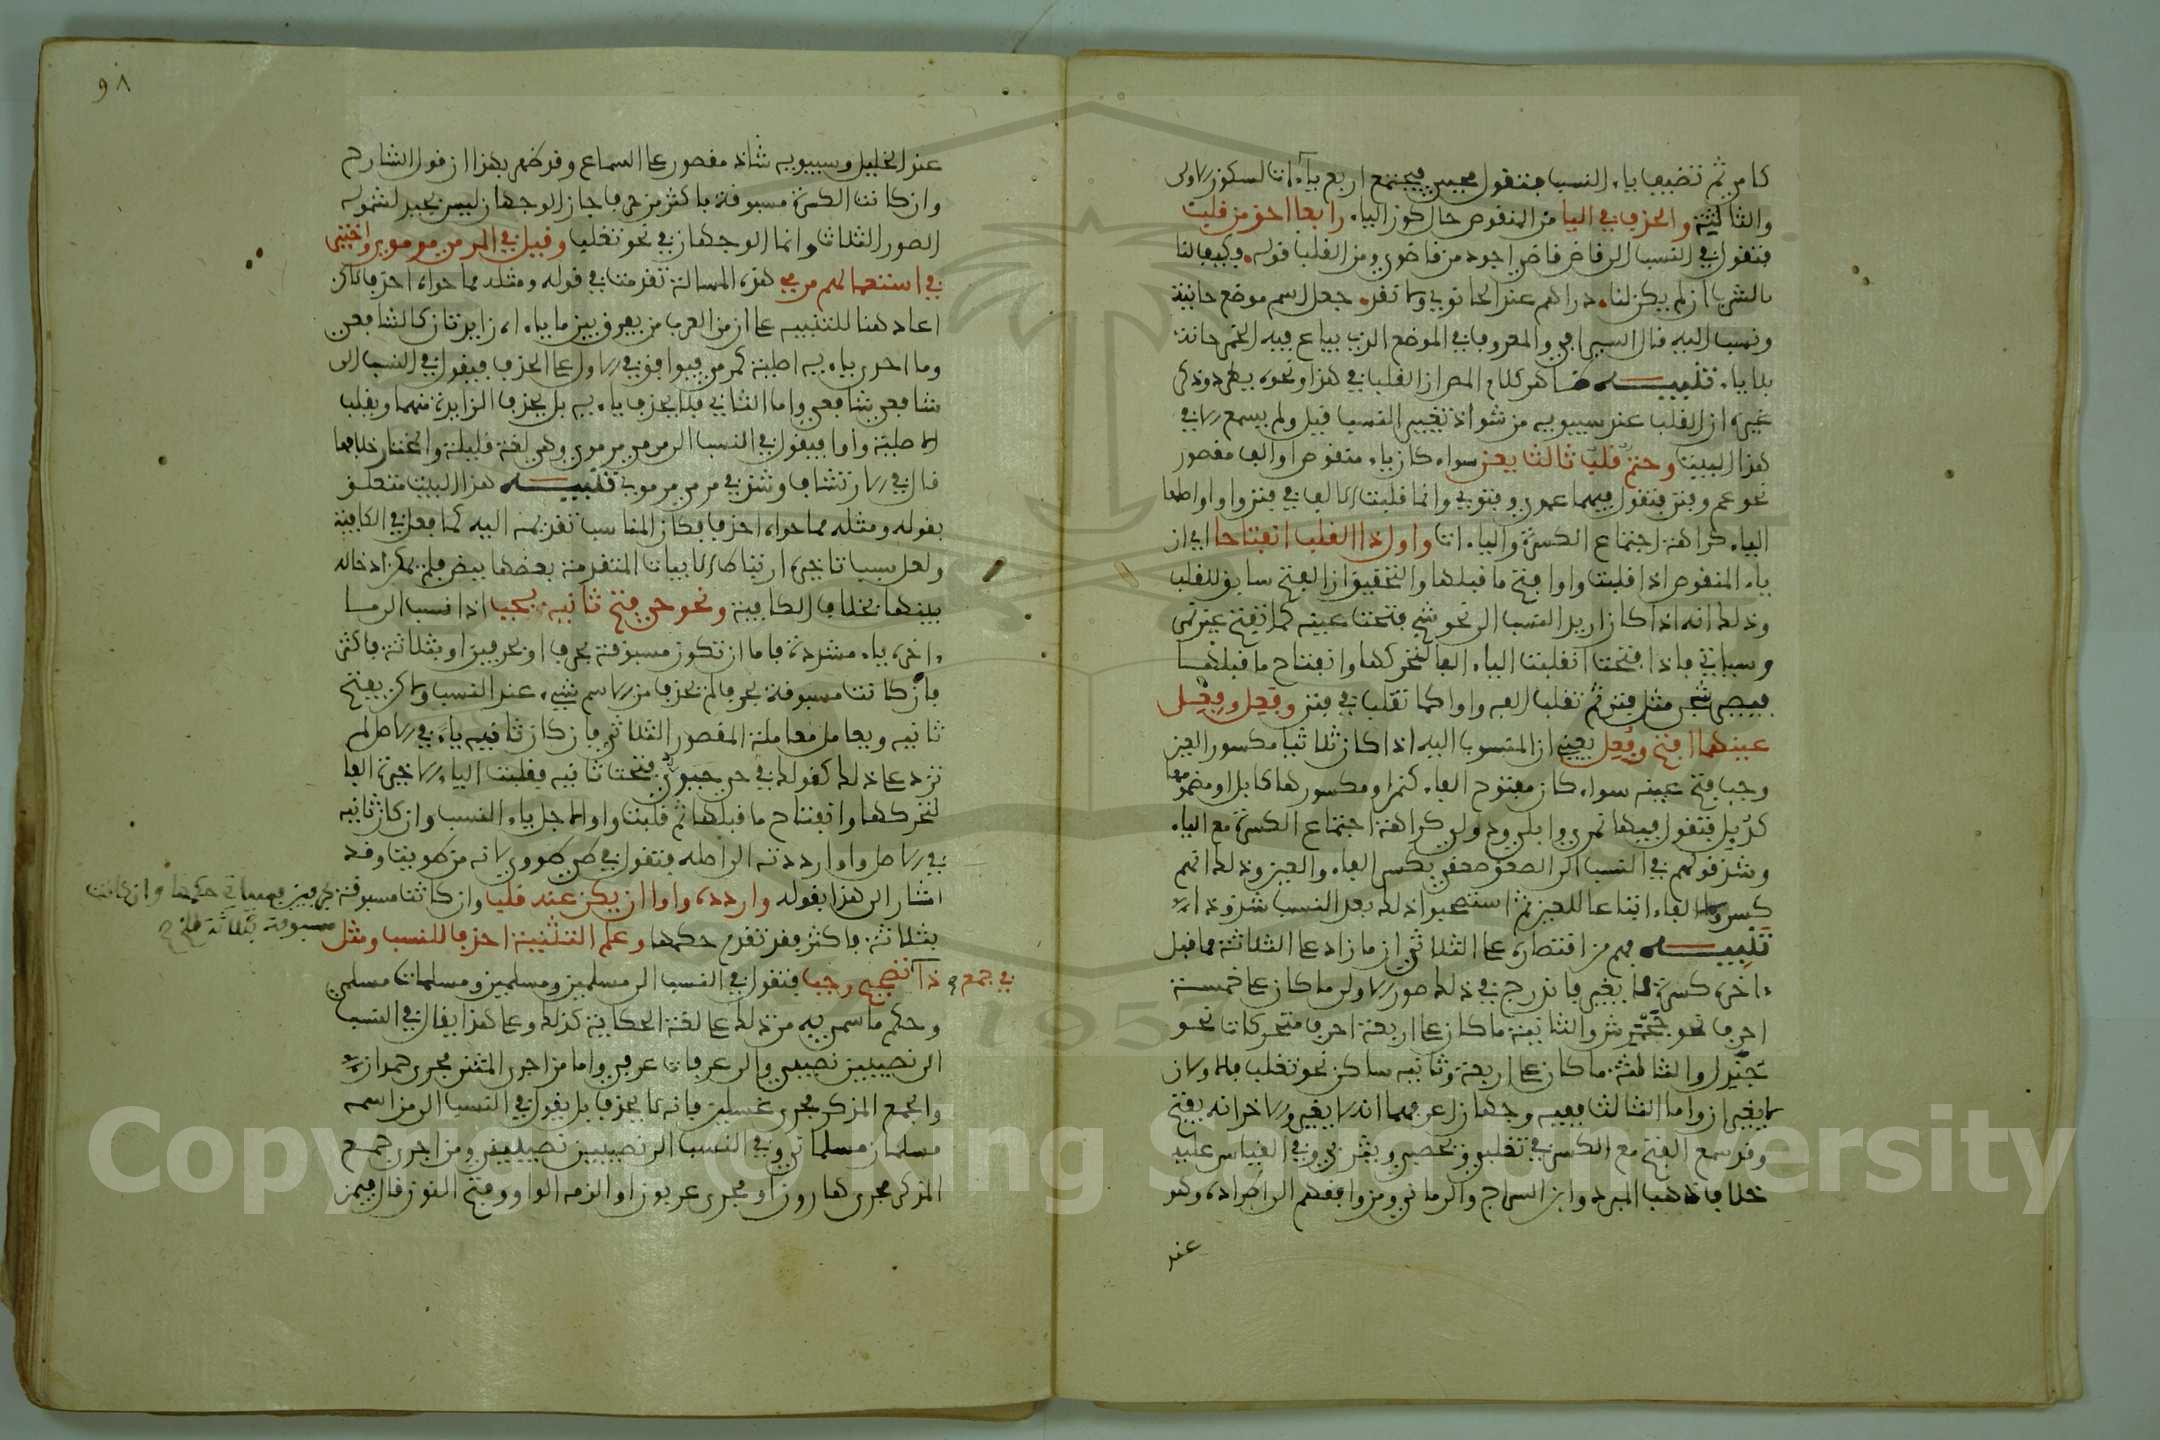 كامر ثم تضيف ياء النسب فتقول محيي فيجتمع اربع ياءات لسكون الاولى
والثالثة والحذف في اليا من المنقوص حال كون الياء رابعا احق من قلب
فتقول في النسب الى قاض قاضي اجود من قاضوي ومن القلب قوله وكيف لنا
بالشرب ان لم يكن لنا دراهم عند الحانوي ولا نقد جعل اسم موضع حانية
ونسب اليه قال السيرافي والمعروف في الموضع الذي يباع فيه الخمر حانة
بلا ياء تنبيه ظاهر كلام المص ان القلب في هذا ونحوه يطرد وذكر
غيره ان القلب عند سيبويه من شواذ تغيير النسب قيل ولم يسمع الا في
هذا البيت وحتم قلب ثالث يعن سواء كان ياء منقوص او الف مقصور
نحو عم وفتى فتقول فيهما عموي وفتوي وانما قلبت الالف في فتى واوا واصلها
الياء كراهة اجتماع الكسرة والياءات واول ذا القلب انفتاحا اي ان
ياء المنقوص اذا قلبت واوا فتح ما قبلها والتحقيق ان الفتح سابق للقلب
وذلك انه اذا كان اريد النسب الى نحو شج فتحت عينه كما تفتح عين نمر
وسياتي فاذا فتحت انقلبت الياء الفا لتحركها وانفتاح ما قبلها
فيصير شجى مثل فتى ثم تقلب الفه واوا كما تقلب في فتى وفعل وفعل
عينهما افتح وفعل يعني ان المنسوب اليه اذا كان ثلاثيا مكسور العين
وجب فتح عينه سواء كان مفتوح الفاء كنمر او مكسورها كابل او مضمومها
كدئل فتقول فيها نمري وابلي ودولي كراهة اجتماع الكسرة مع الياء
وشذ قولهم في النسب الى الصعق صعقي بكسر الفاء والعين وذلك انهم
كسروا الفاء اتباعا للعين ثم استصحبوا ذلك بعد النسب شذوذا اه
تنبيه فهم من اقتصاره على الثلاثي ان ما زاد على الثلاثة مما قبل
اخره كسرة لا يغير فاندرج في ذلك صور الاولى ما كان على خمسة
احرف نحو جحمرش والثانية ما كان على اربعة احرف متحركات نحو
جندل والثالثة ما كان على اربعة وثانيه ساكن نحو تغلب فالاولان
لا يغيران واما الثالث ففيه وجهان اعرفهما انه لا يغير والاخر انه يفتح
وقد سمع الفتح مع الكسر في تغلبي ويحصبي ويثربي وفي القياس عليه
خلاف ذهب المبرد وابن السراج والرماني ومن وافقهم الى اطراده وهو
عند
٩٨
عند الخليل وسيبويه شاذ مقصور على السماع وقد ظهر بهذا ان قول الشارح
وان كانت الكسرة مسبوقة باكثر من حرف جاز الوجهان ليس بجيد لشموله
الصور الثلاث وانما الوجهان في نحو تغلب وقيل في المرمي مرموي واختير
في استعمالهم مرمي هذه المسالة تقدمت في قوله ومثله مما حواه احذف لكن
اعاد هنا للتنبيه على ان من العرب من يفرق بين ما ياءاه زائدتان كالشافعي
وما احدى ياءيه اصلية كمرمي فيوافق في الاول على الحذف فيقول في النسب الى
شافعي شافعي واما الثاني فلا يحذف ياءيه بل يحذف الزايدة منهما ويقلب
الاصلية واوا فيقول في النسب الى مرمي مرموي وهي لغة قليلة والمختار خلافها
قال في الارتشاف وشذ في مرمي مرموي تنبيه هذا البيت متعلق
بقوله ومثله مما حواه احذف فكان المناسب تقديمه اليه كما فعل في الكافية
ولعل سبب تاخيره ارتباط الابيات المتقدمة بعضها ببعض فلم يمكن ادخاله
بينها بخلاف الكافية ونحو حي فتح ثانيه يجب اذا نسب الى ما
اخره ياء مشددة فاما ان تكون مسبوقة بحرف او بحرفين او بثلاثة فاكثر
فان كانت مسبوقة بحرف لم تحذف من الاسم شيء عند النسب ولكن يفتح
ثانيه ويعامل معاملة المقصور الثلاثي فان كان ثانيه ياء في الاصل لم
تزد على ذلك كقولك في حي حيوي فتحت ثانيه فقلبت الياء الاخيرة الفا
لتحركها وانفتاح ما قبلها ثم قلبت واوا لاجل ياء النسب وان كان ثانيه
في الاصل واوا رددته الى اصله فتقول في طي طووي لانه من طويت وقد
اشار الى هذا بقوله واردده واوا ان يكن عنه قلب وان كانت مسبوقة بحرفين فسياتي حكمها وان كانت
مسبوقة بثلاثة
بثلاثة فاكثر فقد تقدم حكمها وعلم التثنية احذف للنسب ومثل
ذا في جمع تصحيح وجب فتقول في النسب الى مسلمين ومسلمين ومسلمات مسلمي
وحكم ما سمي به من ذلك على لغة الحكاية كذلك وعلى هذا يقال في النسب
الى نصيبين نصيبي والى عرفات عرفي واما من اجرى المثنى مجرى حمدان
والجمع المذكر مجرى غسلين فانه لا يحذف بل يقول في النسب الى من اسمه
مسلمان مسلماني وفي النسب الى نصيبين نصيبيني ومن اجرى جمع
المذكر مجرى هارون او مجرى عربون او الزمه الواو وفتح النون قال فيمن
Copyright © King Saud University
1957